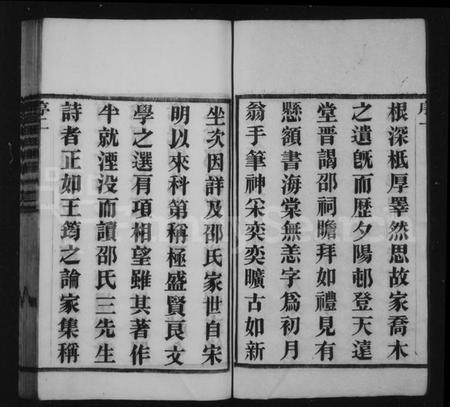 序一
根深柢厚睪然思故家喬木
之遺旣而歷夕陽邨登天遠
堂晋謁邵祠瞻拜如禮見有
懸額書海棠無恙字爲初月
翁手筆神采奕奕曠古如新
坐次因詳及邵氏家世自宋
明以來科第稱極盛賢良文
學之選肩項相望雖其著作
半就湮没而讀邵氏三先生
詩者正如王筠之論家集稱
序二